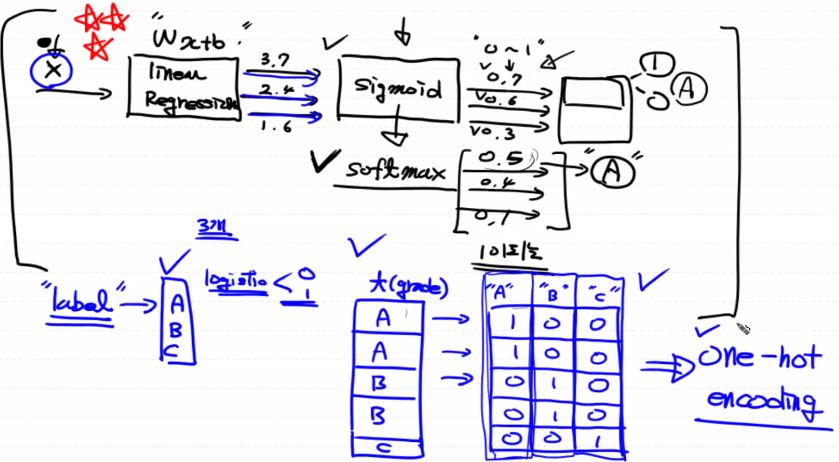 "Wx+b"
x
linear
Regression
3.7
2.4
1.6
sigmoid
"0~1"
0.7
0.6
0.3
1
0
A
softmax
0.5
0.4
0.1
"A"
3개
"label"
A
B
C
logistic < 0
1
t(grade)
A
A
B
B
C
"A" "B" "C"
1 0 0
1 0 0
0 1 0
0 1 0
0 0 1
one-hot
encoding